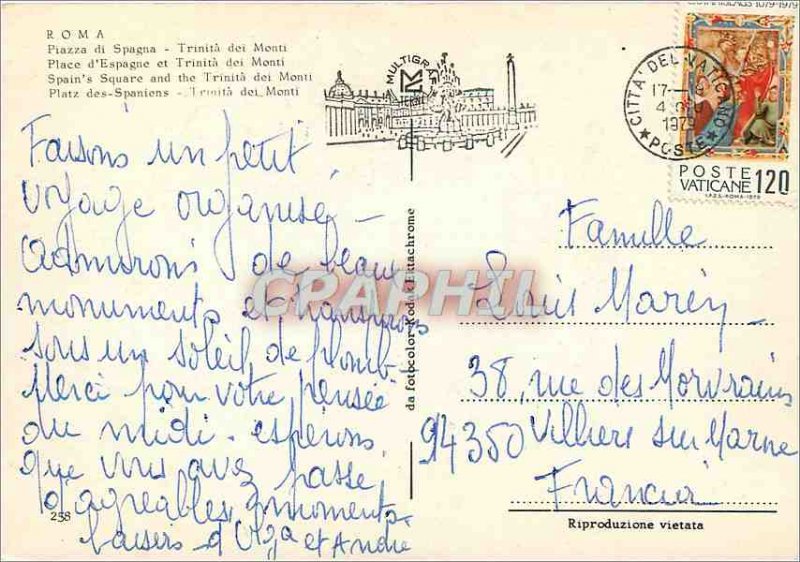 ROMA
Piazza di Spagna - Trinità dei Monti
Place d'Espagne et Trinità dei Monti
Spain's Square and the Trinità dei Monti
Platz des-Spaniens - Trinità dei Monti
MULTIGRAF
CITTA' DEL VATICANO
17-
4
1979
POSTE
1079-1979
POSTE
VATICANE 120
I.P.Z.S.-ROMA-1979
Faisons un petit
voyage organisé -
Admirons de beaux
monuments et transpirons
sous un soleil de plomb -
Merci pour votre pensée
du midi - espérons
que vous avez passé
d'agréables moments.
baisers d' et André
258
da fotocolor Kodak Ektachrome
CPAPHIL
Famille
Louis
38, rue des Morvrains
94350 Villiers sur Marne
Francia
Riproduzione vietata